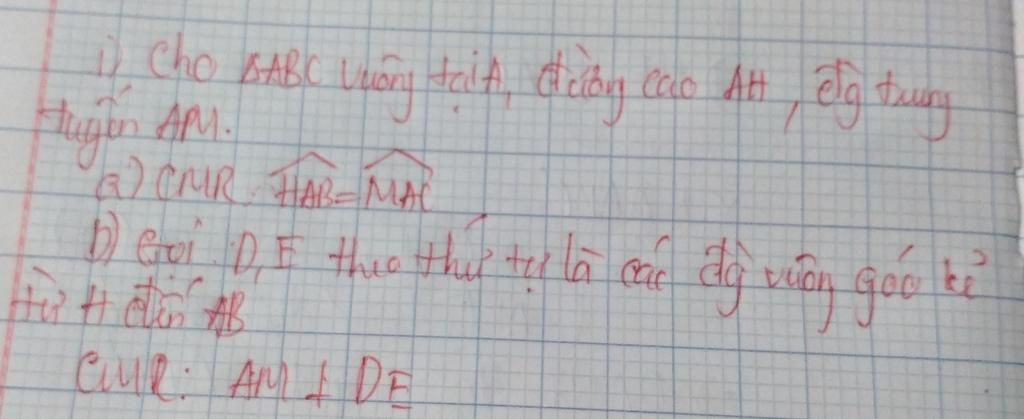 1) Cho ΔABC vuông tại A, đường cao AH, đg trung
tuyến AM.
a) CMR. \widehat{HAB} = \widehat{MAC}
b) Gọi D, E theo thứ tự là các đg vuông góc kẻ
từ H đến AB
CMR: AM ⊥ DE